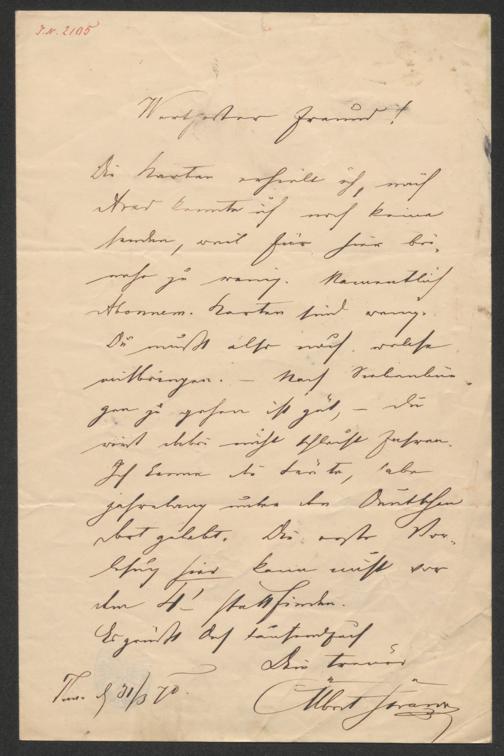 J.N. 2105
Werthester Freund!
Die Karten erhielt ich, nach
Arad konnte ich noch keine
senden, weil für hier bei-
nahe zu wenig. Namentlich
Abonnem. Karten sind wenig.
Du mußt also noch welche
mitbringen. – Nach Siebenbür-
gen zu gehen ist gut, – Du
wirst dabei nicht schlecht fahren.
Ich kenne die Leute, habe
jahrelang unter den Deutschen
dort gelebt. Die erste Vor-
lesung hier kann nicht vor
dem 4! stattfinden.
Es grüßt Dich tausendfach
Dein treuer
Albert
Tem. d 31/3 70.